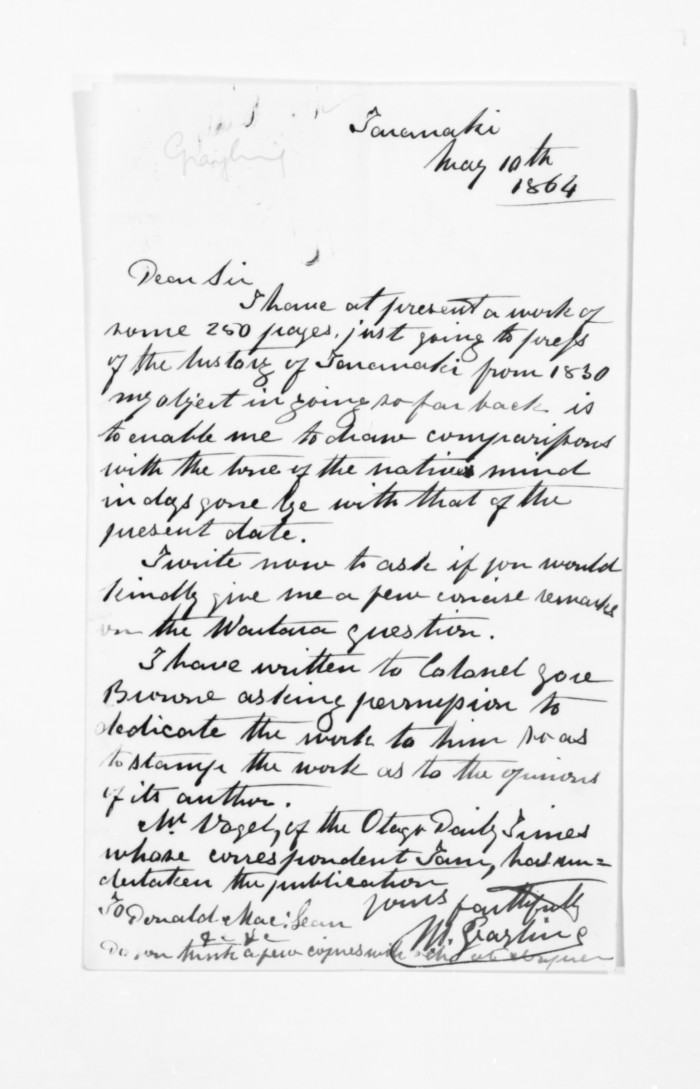 Grayling
Taranaki
May 10th
1864
Dear Sir
I have at present a work of
some 250 pages, just going to press
of the history of Taranaki from 1830
my object in going so far back is
to enable me to draw comparisons
with the tone of the native mind
in days gone bye with that of the
present date.
I write now to ask if you would
kindly give me a few concise remarks
on the Waitara question.
I have written to Colonel Gore
Browne asking permission to
dedicate the work to him so as
to stamp the work as to the opinions
of its author.
Mr Vogel, of the Otago Daily Times
whose correspondent I am, has un=
dertaken the publication
yours faithfully
W. Grayling
To Donald MacLean
&c &c
Do you think a few copies will sell at Napier